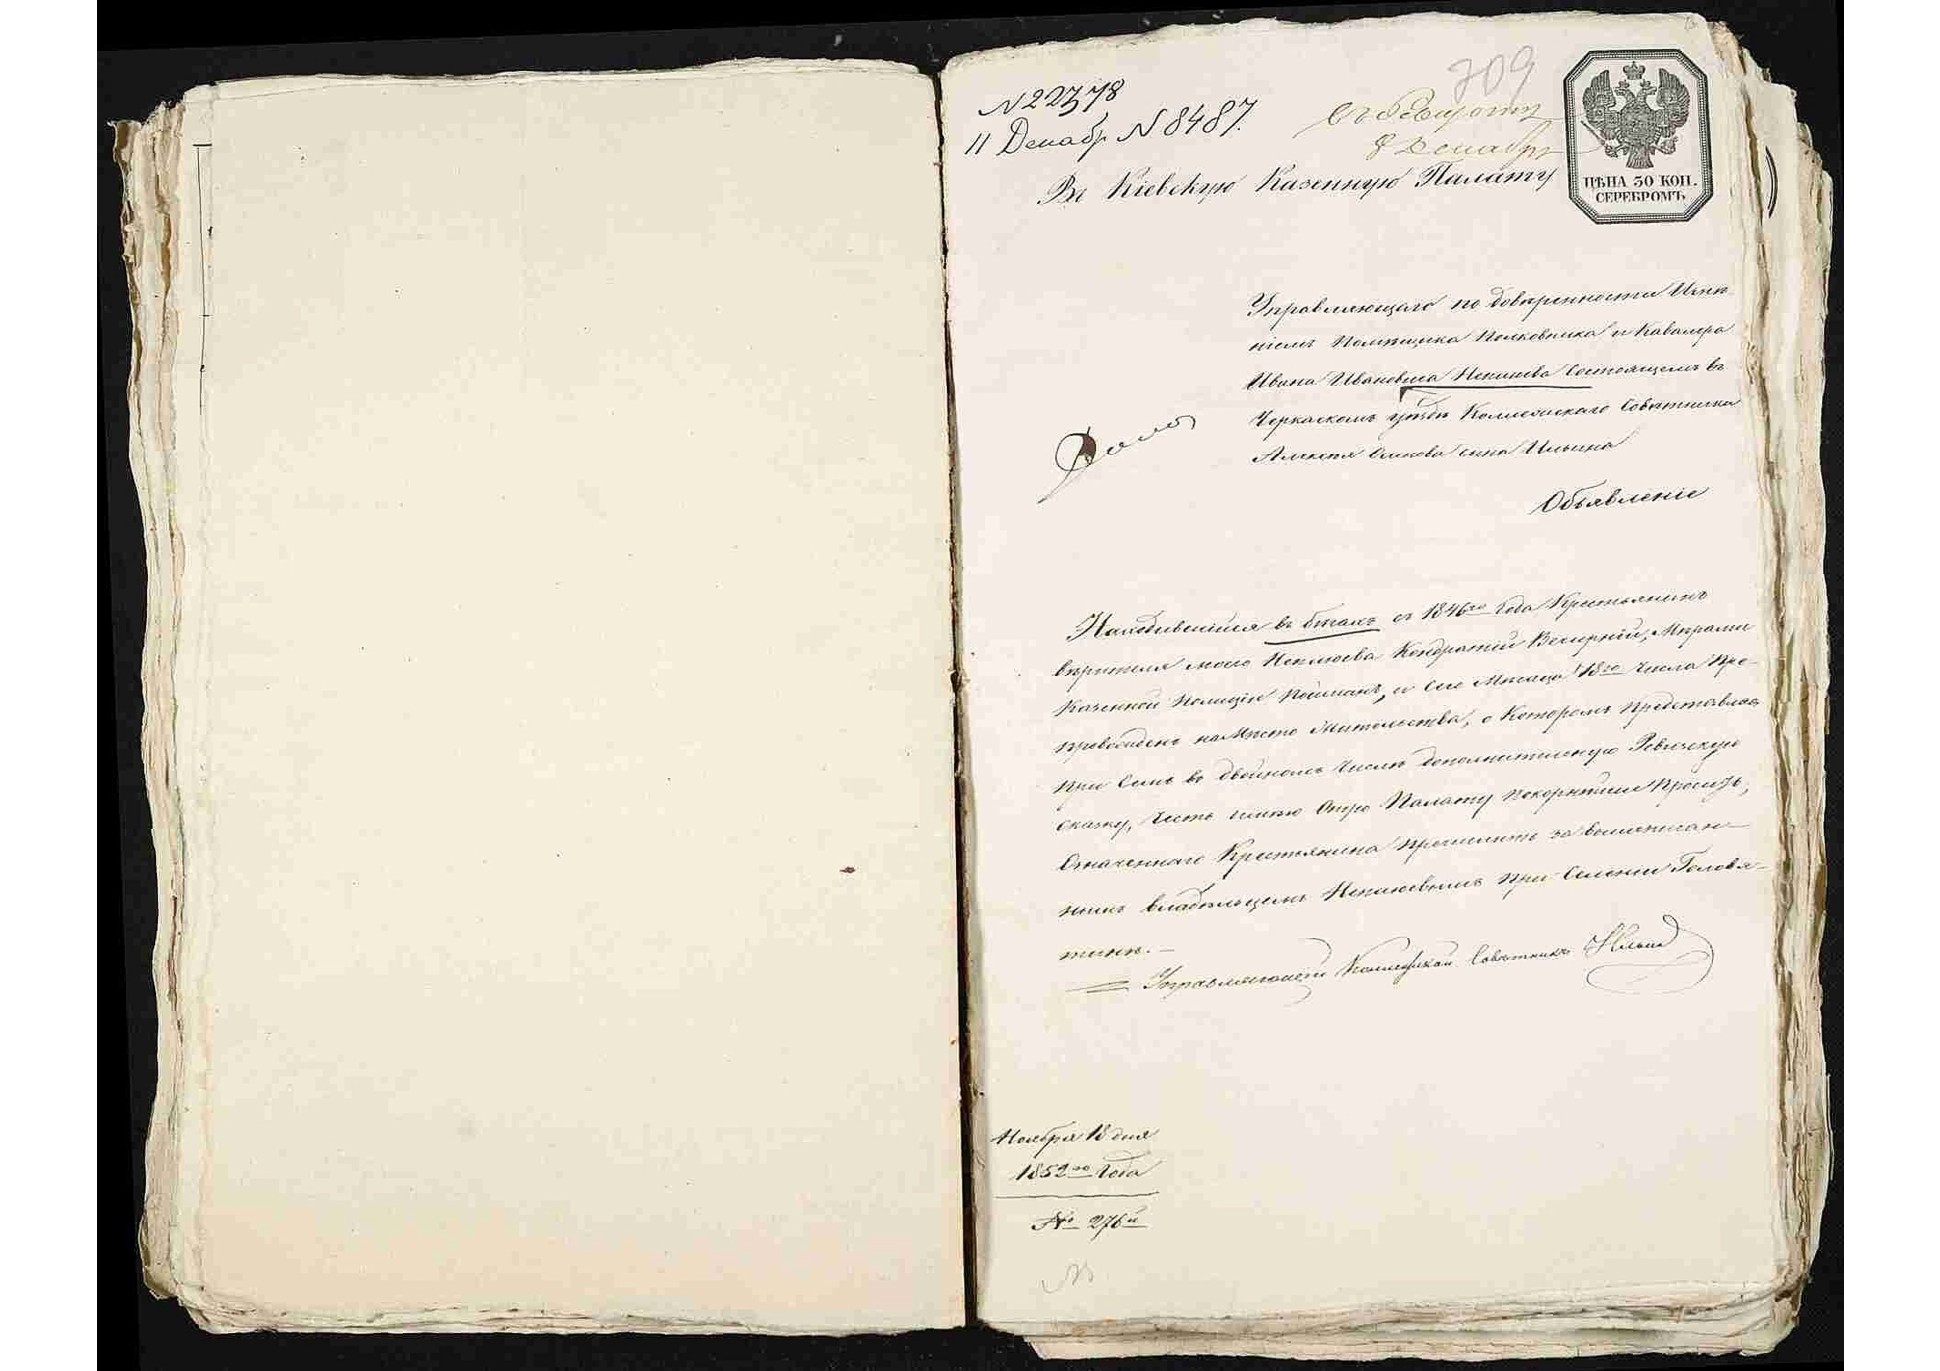 709
N 22378
11 Декабр N 8487.
8 Декабря
ЦѢНА 30 КОП.
СЕРЕБРОМЪ.
Въ Кіевскую Казенную Палату
Управляющаго по доверенности Имѣ-
ніемъ Помѣщика Полковника и Кавалера
Ивана Ивановича Неклюева Состоящемъ въ
Черкаскомъ уѣздѣ Коллежскаго Совѣтника
Алексѣя сына Ильина
Объявленіе
Находившійся въ бѣгахъ съ 1846го Года Крестьянинъ
вѣрителя моего Неклюева Кондратій Вечерній,
Полиціи Пойманъ, и Сего Мѣсяца 18го Числа Пре-
провожденъ на Мѣсто Жительства, о Которомъ Представляя
при Семъ въ двойномъ Числѣ дополнительную Ревизскую
сказку, Честь имѣю Оную Палату покорнѣйше Просить,
Означеннаго Крестьянина Причислить за вышеписан-
нымъ владѣльцемъ Неклюевымъ при Селеніи Головя-
тинѣ.—
Управляющій Коллежскій Совѣтникъ Ильин
Ноября 18 дня
1852го Года
№ 276й